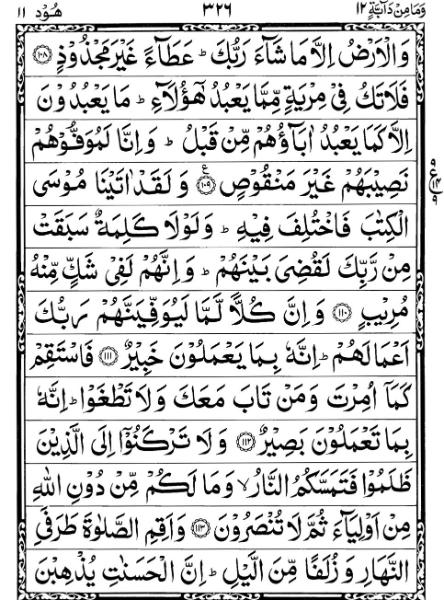 وَمَا مِنْ دَآبَّةٍ ١٢ ٣٢٦ هُوْد ١١
وَالْاَرْضُ اِلَّا مَا شَآءَ رَبُّكَ ؕ عَطَآءً غَيْرَ مَجْذُوْذٍ ۝١٠٨
فَلَا تَكُ فِىْ مِرْيَةٍ مِّمَّا يَعْبُدُ هٰٓؤُلَآءِ ؕ مَا يَعْبُدُوْنَ
اِلَّا كَمَا يَعْبُدُ اٰبَآؤُهُمْ مِّنْ قَبْلُ ؕ وَاِنَّا لَمُوَفُّوْهُمْ
نَصِيْبَهُمْ غَيْرَ مَنْقُوْصٍ ۝١٠٩ ع وَلَقَدْ اٰتَيْنَا مُوْسَى
الْكِتٰبَ فَاخْتُلِفَ فِيْهِ ؕ وَلَوْلَا كَلِمَةٌ سَبَقَتْ
مِنْ رَّبِّكَ لَقُضِىَ بَيْنَهُمْ ؕ وَاِنَّهُمْ لَفِىْ شَكٍّ مِّنْهُ
مُرِيْبٍ ۝١١٠ وَاِنَّ كُلًّا لَّمَّا لَيُوَفِّيَنَّهُمْ رَبُّكَ
اَعْمَالَهُمْ ؕ اِنَّهٗ بِمَا يَعْمَلُوْنَ خَبِيْرٌ ۝١١١ فَاسْتَقِمْ
كَمَاۤ اُمِرْتَ وَمَنْ تَابَ مَعَكَ وَلَا تَطْغَوْا ؕ اِنَّهٗ
بِمَا تَعْمَلُوْنَ بَصِيْرٌ ۝١١٢ وَلَا تَرْكَنُوْۤا اِلَى الَّذِيْنَ
ظَلَمُوْا فَتَمَسَّكُمُ النَّارُ ۙ وَمَا لَكُمْ مِّنْ دُوْنِ اللّٰهِ
مِنْ اَوْلِيَآءَ ثُمَّ لَا تُنْصَرُوْنَ ۝١١٣ وَاَقِمِ الصَّلٰوةَ طَرَفَىِ
النَّهَارِ وَزُلَفًا مِّنَ الَّيْلِ ؕ اِنَّ الْحَسَنٰتِ يُذْهِبْنَ